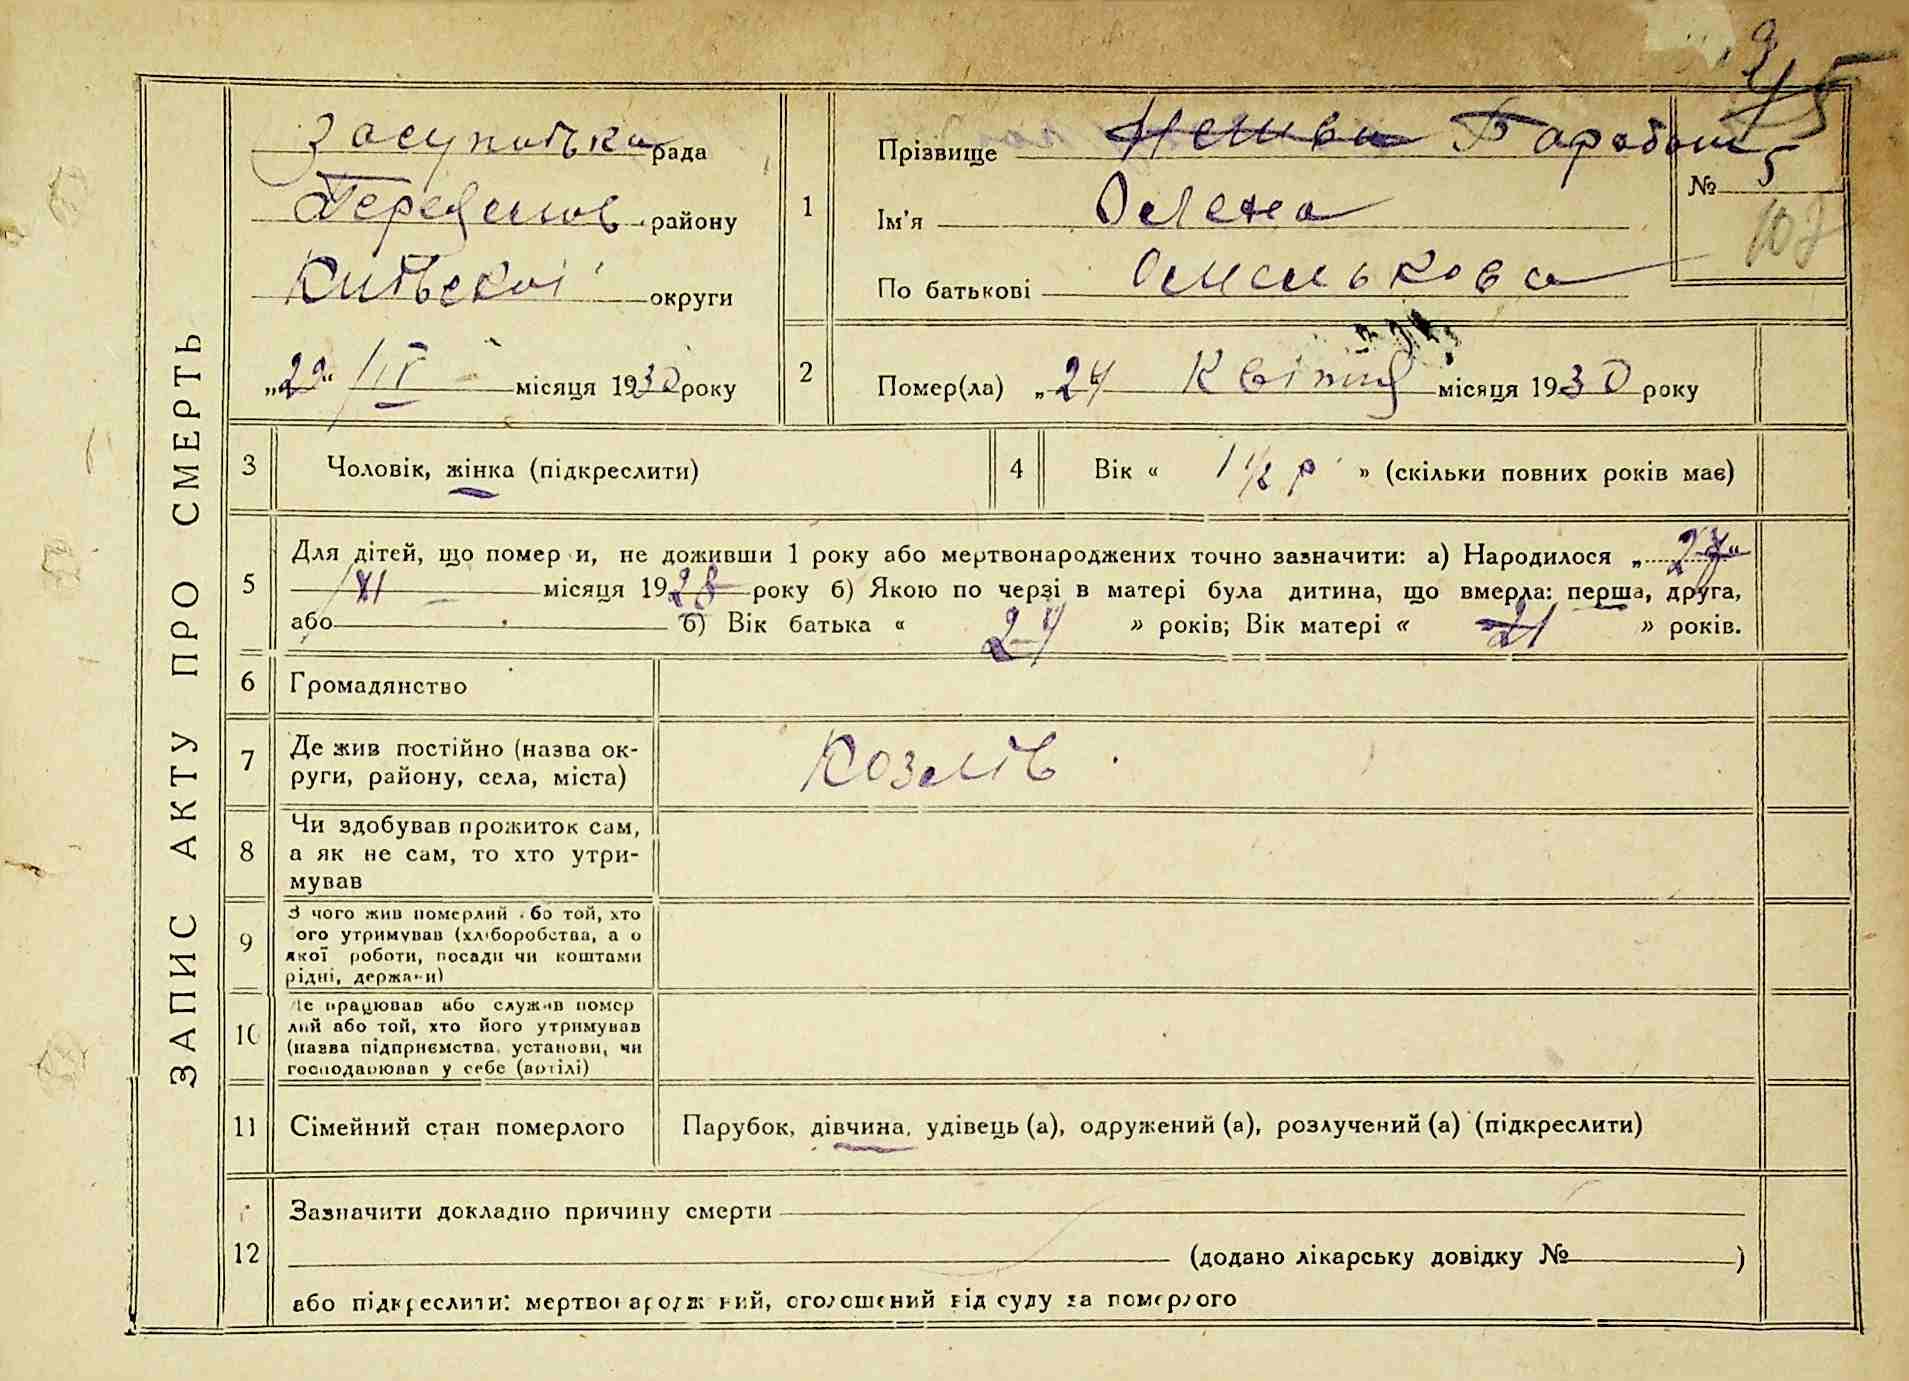 ЗАПИС АКТУ ПРО СМЕРТЬ
рада
району
округи
„29“ /IV місяця 1930 року
1
Прізвище
Ім'я Олена
По батькові Омелькова
№ 5
2
Помер(ла) „24 Квітня місяця 1930 року
3
Чоловік, жінка (підкреслити)
4
Вік « 1 1/2 р » (скільки повних років має)
5
Для дітей, що помер и, не доживши 1 року або мертвонароджених точно зазначити: а) Народилося „27“
/XI місяця 1928 року б) Якою по черзі в матері була дитина, що вмерла: перша, друга,
або б) Вік батька « 24 » років; Вік матері « 21 » років.
6
Громадянство
7
Де жив постійно (назва ок-
руги, району, села, міста)
Козлів
8
Чи здобував прожиток сам,
а як не сам, то хто утри-
мував
9
З чого жив померлий бо той, хто
ого утримував (хліборобства, а о
якої роботи, посади чи коштами
рідні, держави)
10
е працював або служив помер
лий або той, хто його утримував
(назва підприємства, установи, чи
господарював у себе (артілі)
11
Сімейний стан померлого
Парубок, дівчина, удівець (а), одружений (а), розлучений (а) (підкреслити)
12
Зазначити докладно причину смерти
(додано лікарську довідку № )
або підкреслити: мертвонароджений, оголошений від суду за померлого